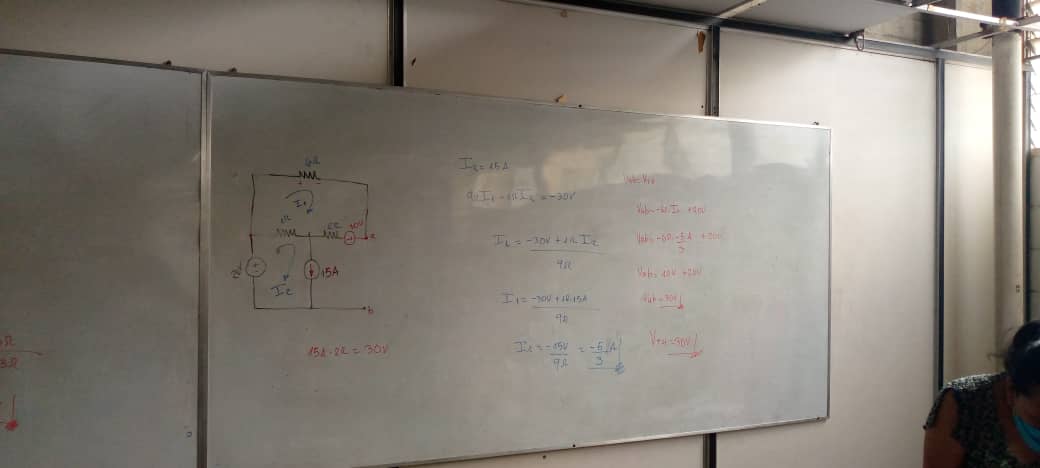 6Ω
+ -
I1
1Ω
2Ω
30V
a
15A
I2
b
15A·2Ω = 30V
I2 = 15A
9ΩI1 - 1ΩI2 = -30V
I1 = -30V + 1Ω I2
9Ω
I1 = -30V + 1Ω·15A
9Ω
I1 = -15V = -5 A
9Ω 3
Vab = -6Ω·I1 + 20V
Vab = -6Ω·-5A + 20V
3
Vab = 10V + 20V
Vab = 30V
VTH = 30V
3Ω